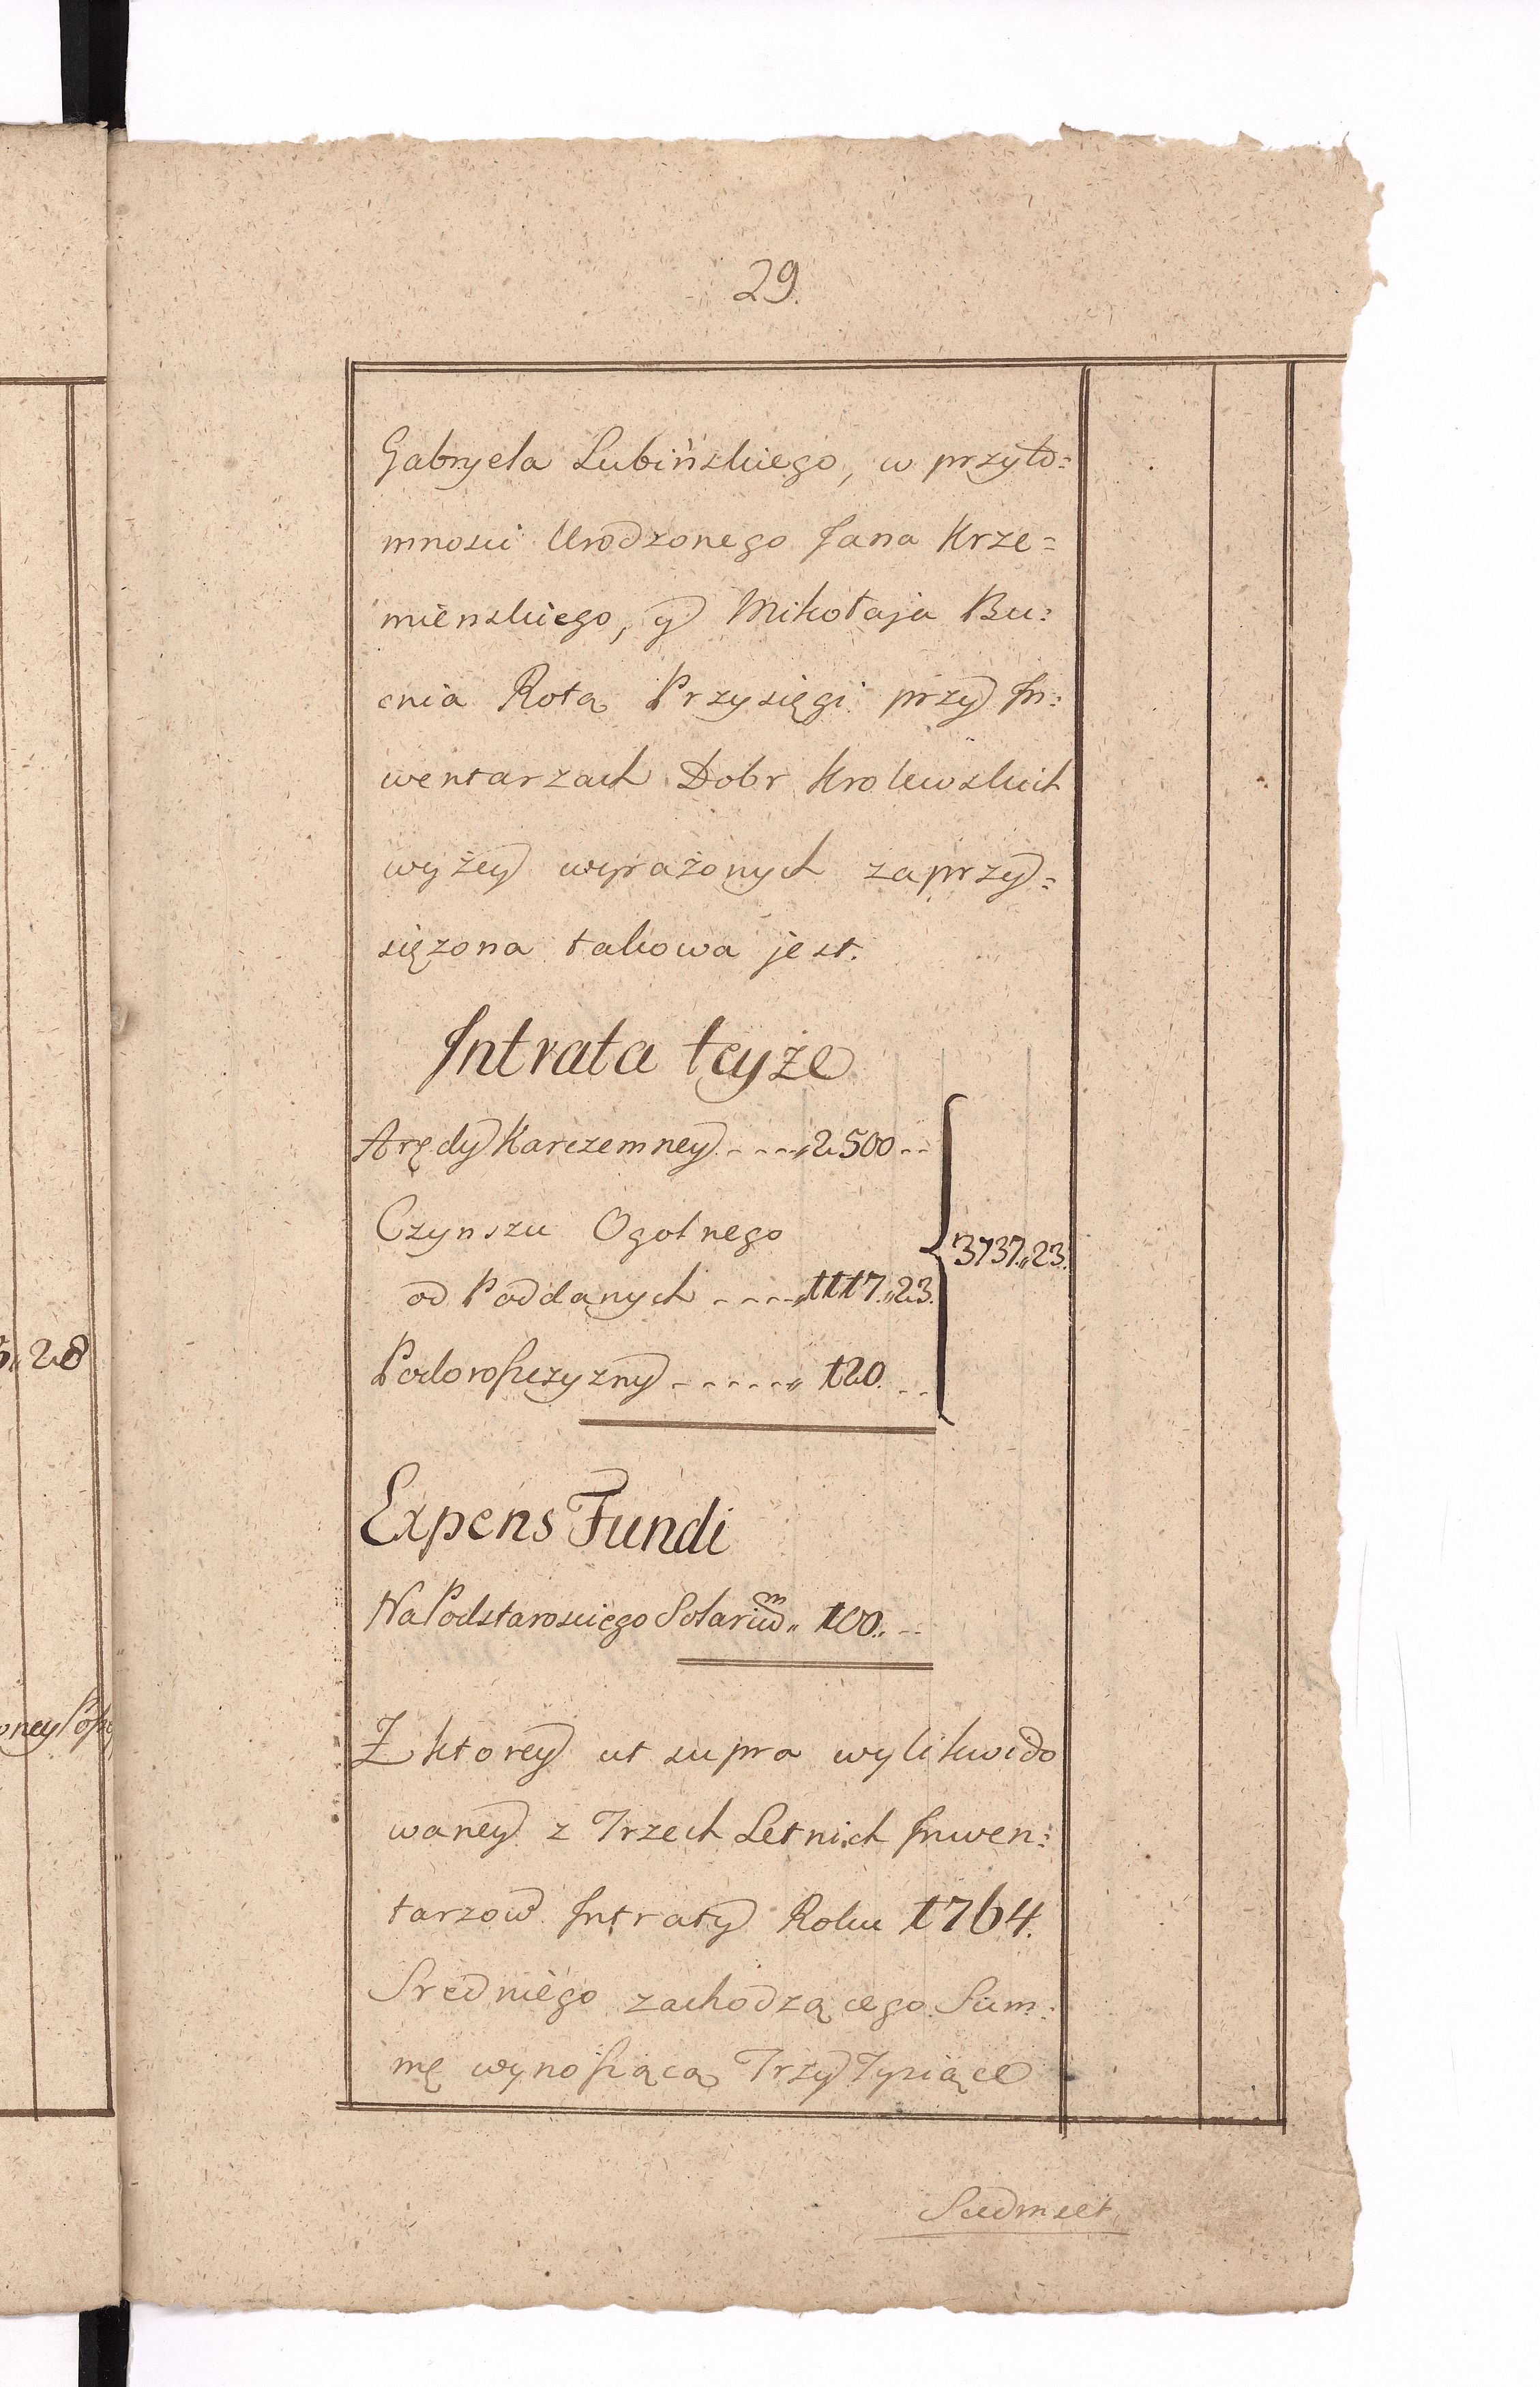 29.
Gabryela Lubińskiego, w przyto=
mnosci Urodzonego Jana Krze=
mienskiego, y Mikołaja Bu=
cnia Rotą Przysięgi przy In=
wentarzach Dobr Krolewskich
wyżey wyrażonych zaprzy=
siężona takowa jest.
Intrata teyże
Arędy Karczemney - - - - „ 2500 - -
Czynszu Ogolnego
od Poddanych - - - - „ 1117 „ 23.
3737 „ 23.
Podorosczyzny - - - - - - „ 120. - -
Expens Fundi
Na Podstarosciego Solarium „ 100 „ - -
Z ktorey ut supra wylikwido
waney z Trzech Letnich Inwen=
tarzow Intraty Roku 1764.
Sredniego zachodzącego Sum=
mę wynosiącą Trzy Tysiące
Siedmset
28